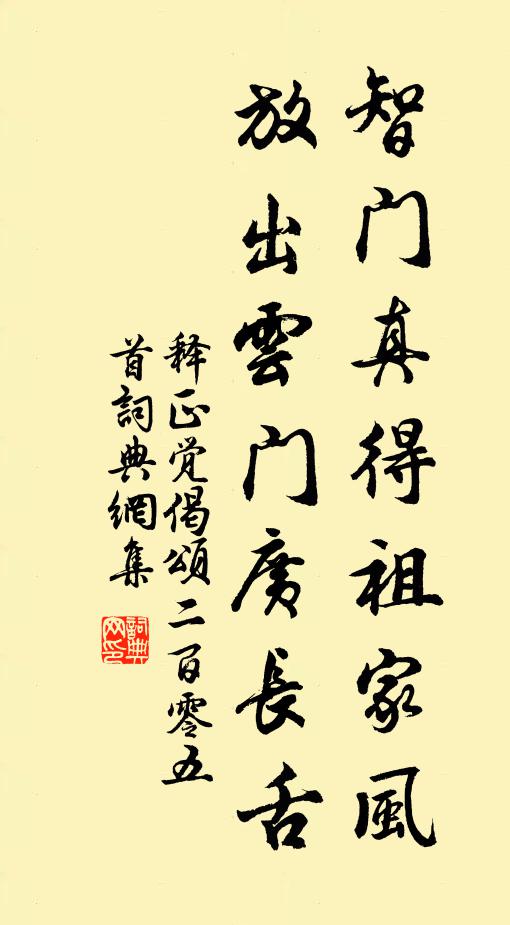 智门真得祖家風
放出雲门廣長舌
释正觉偈頌二百零五
首詞典網集
詞典网印